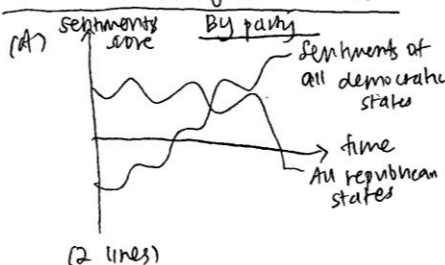 (A) sentiments score
By party
Sentiments of
all democratic
states
time
All republican
states
(2 lines)